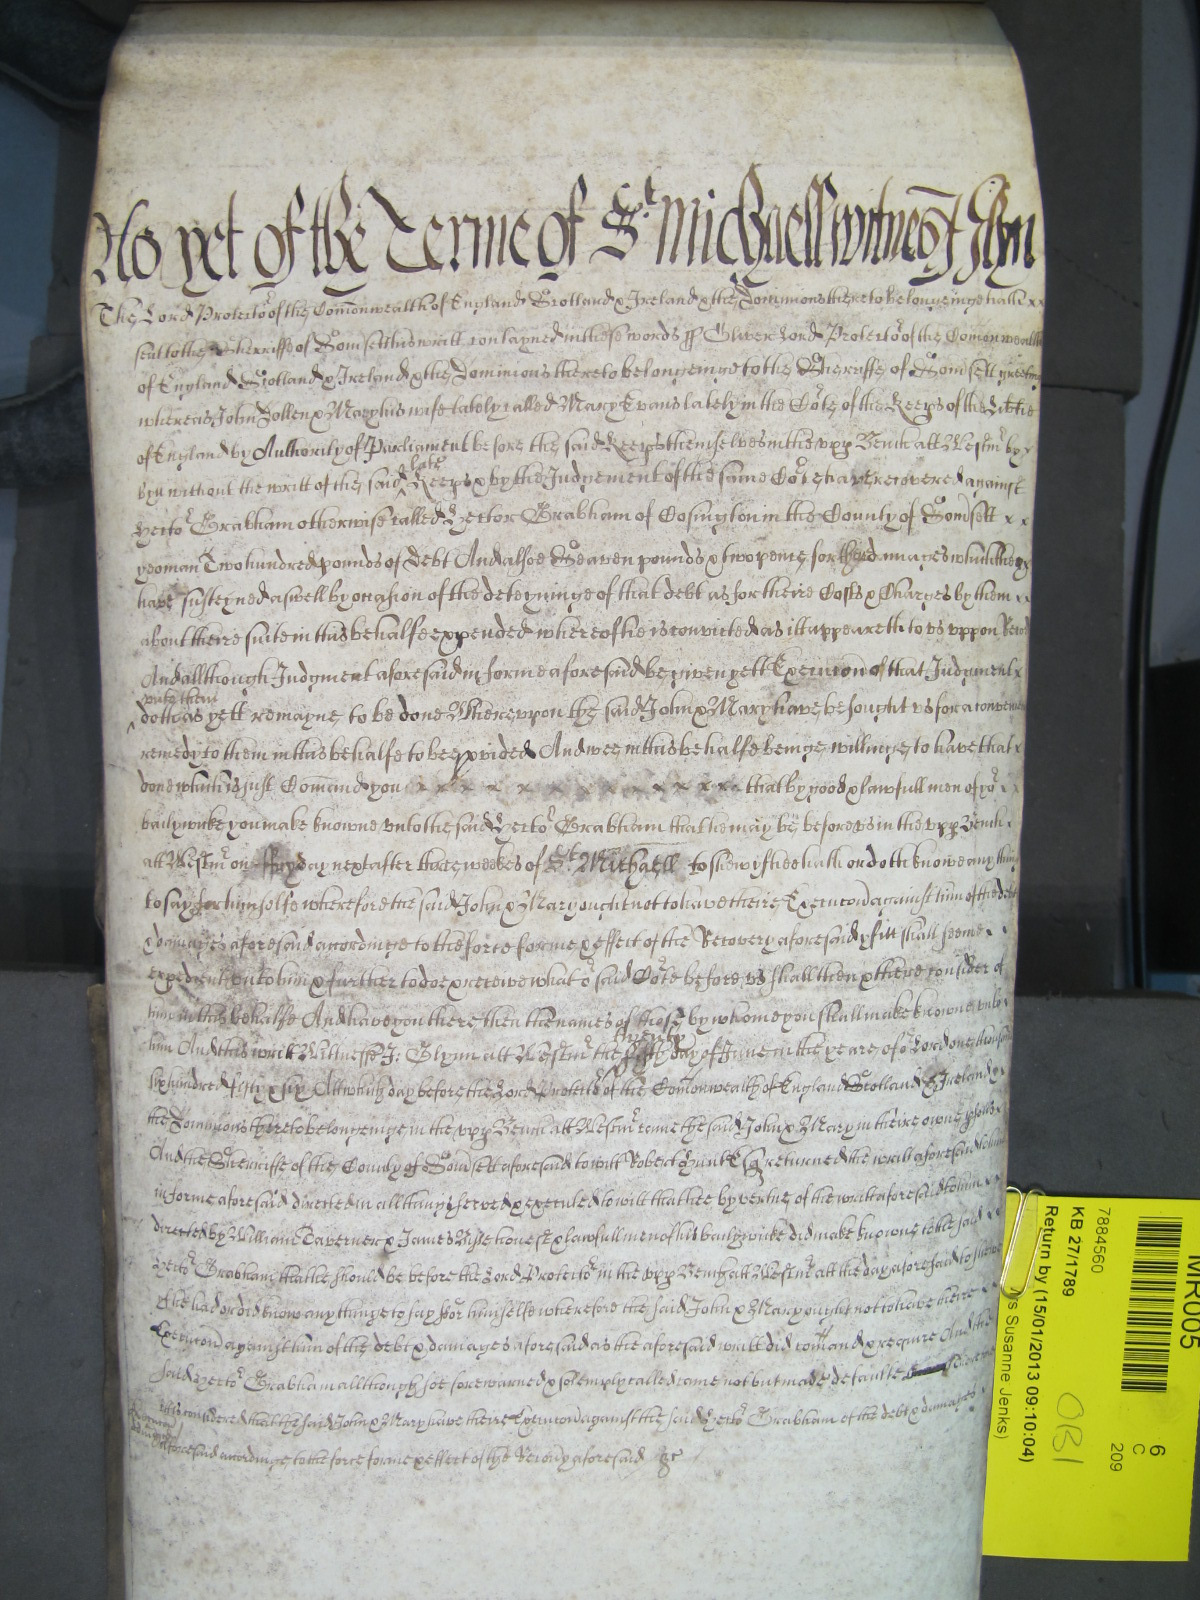 As yet of the Terme of St Michaell witnes J Glyn
The Lord Protector of the Comonwealth of England Scotland & Ireland & the Dominions thereto belongeinge hath x x
sent to the Sherriffe of Somsett his writt conteyned in these words ss Oliver Lord Protector of the Comonwealth
of England Scotland & Ireland & the Dominions thereto belongeinge to the Sherriffe of Somsett greeting
whereas John Bollen & Mary his wife lately called Mary Evans lately in the Cote of the Keeps of the Libtie
of England by Authority of Parliament before the said Keeps themselves in the upp Bench att Westmr by x
byll without the writt of the said late Keeps & by the Judgement of the same Cote have recovered against
Hector Grabham otherwise called Hector Grabham of Cosington in the County of Somsett x x
yeoman Two hundred pounds of debt And alsoe Seaven pounds & two pence for their damages which they
have susteyned aswell by occasion of the deteyninge of that debt as for theire Costs & Charges by them x x
about theire suite in this behalfe expended whereof hee is convicted as itt appeareth to us uppon Record
And allthough Judgment aforesaid in forme aforesaid be given yett Execucon of that Judgment x
unto them
doth as yett remayne to be done Whereuppon the said John & Mary have besought us for a convenient
remedy to them in this behalfe to bee pvided And wee in this behalfe beinge willinge to have that x
done which is just Comand you x x x x x x x x x x x x x that by good & lawfull men of yor x
bailywicke you make knowne unto the said Hector Grabham that he may be before us in the upp Bench
att Westmr on day next after three weekes of St Michaell to shew if hee hath or doth knowe any thing
to say for himselfe wherefore the said John & Mary ought not to have theire Execucon against him of the debt
& damages aforesaid accordinge to the force forme & effect of the Recovery aforesaid yf itt shall seeme
expedient unto him & further to doe & receive what or said Cote before us shall then & there consider of
him in this behalfe And have you there then the names of those by whome you shall make knowne unto
him And this writt Wittnesse J: Glynn att Westmr the twenty day of June in the yeare of or Lord one thousand
six hundred fifty & six Att which day before the Lord Protector of the Comonwealth of England Scotland & Ireland &
the Dominions thereto belongeinge in the upp Bench att Westmr come the said John & Mary in theire owne psons
And the Sherriffe of the County of Somsett aforesaid to witt Robert Hunt Esq returned the writt aforesaid to him
in forme aforesaid directed in all things served & executed to witt that hee by vertue of the writt aforesaid to him x x
directed by William Taverner & James Wise honest & lawfull men of his bailywicke did make knowne to the said x x
Hector Grabham that he should be before the Lord Protector in the upp Bench att Westmr att the day aforesaid to shewe
if he had or did know any thinge to say for himselfe wherefore the said John & Mary ought not to have theire x x
Execucon against him of the debt & damages aforesaid as the aforesaid writt did comand & require And the
said Hector Grabham allthough hee forewarned & solemply called came not but made default Therefore
itt is considered that the said John & Mary have theire Execucon against the said Hector Grabham of the debt & damages
aforesaid accordinge to the force forme & effect of the Recovery aforesaid &c
MR005
6
C
209
7884560
KB 27/1789
Return by (15/01/2013 09:10:04)
Susanne Jenks)
OB1